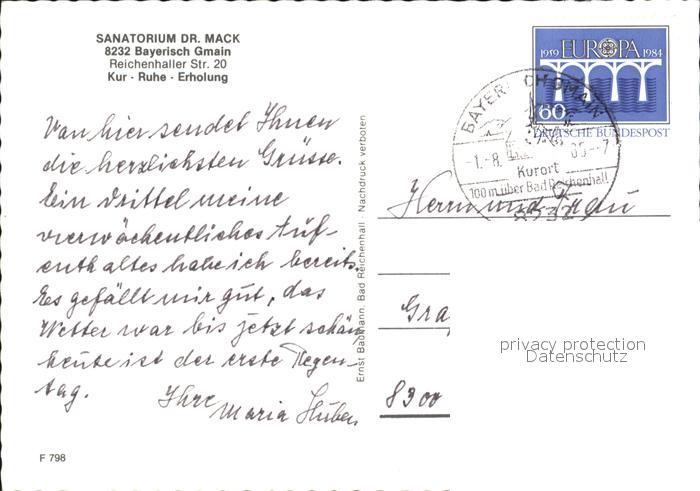 SANATORIUM DR. MACK
8232 Bayerisch Gmain
Reichenhaller Str. 20
Kur - Ruhe - Erholung
Von hier sendet Ihnen
die herzlichsten Grüsse.
Ein Drittel meine
vierwöchentliches Auf-
enthaltes habe ich bereits.
Es gefällt mir gut, das
Wetter war bis jetzt schön,
heute ist der erste Regen-
tag.
Ihre
Maria Huber
F 798
Ernst Baumann, Bad Reichenhall · Nachdruck verboten
1959 EUROPA 1984
60
DEUTSCHE BUNDESPOST
BAYERISCH GMAIN
-1.-8. 85--7
Kurort
100 m über Bad Reichenhall
8232
Herrn und Frau
Gra
8300
privacy protection
Datenschutz